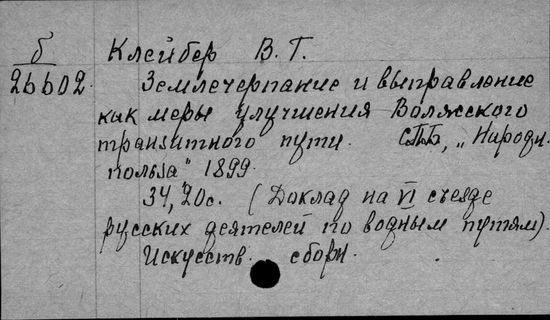 б Клейбер В. Г.
26602 Землечерпание и выправление
как меры улучшения Волжского
транзитного пути. СПб, „Народн.
польза" 1899.
34, 20с. (Доклад на VI съезде
русских деятелей по водным путям).
Искусств. сборн.